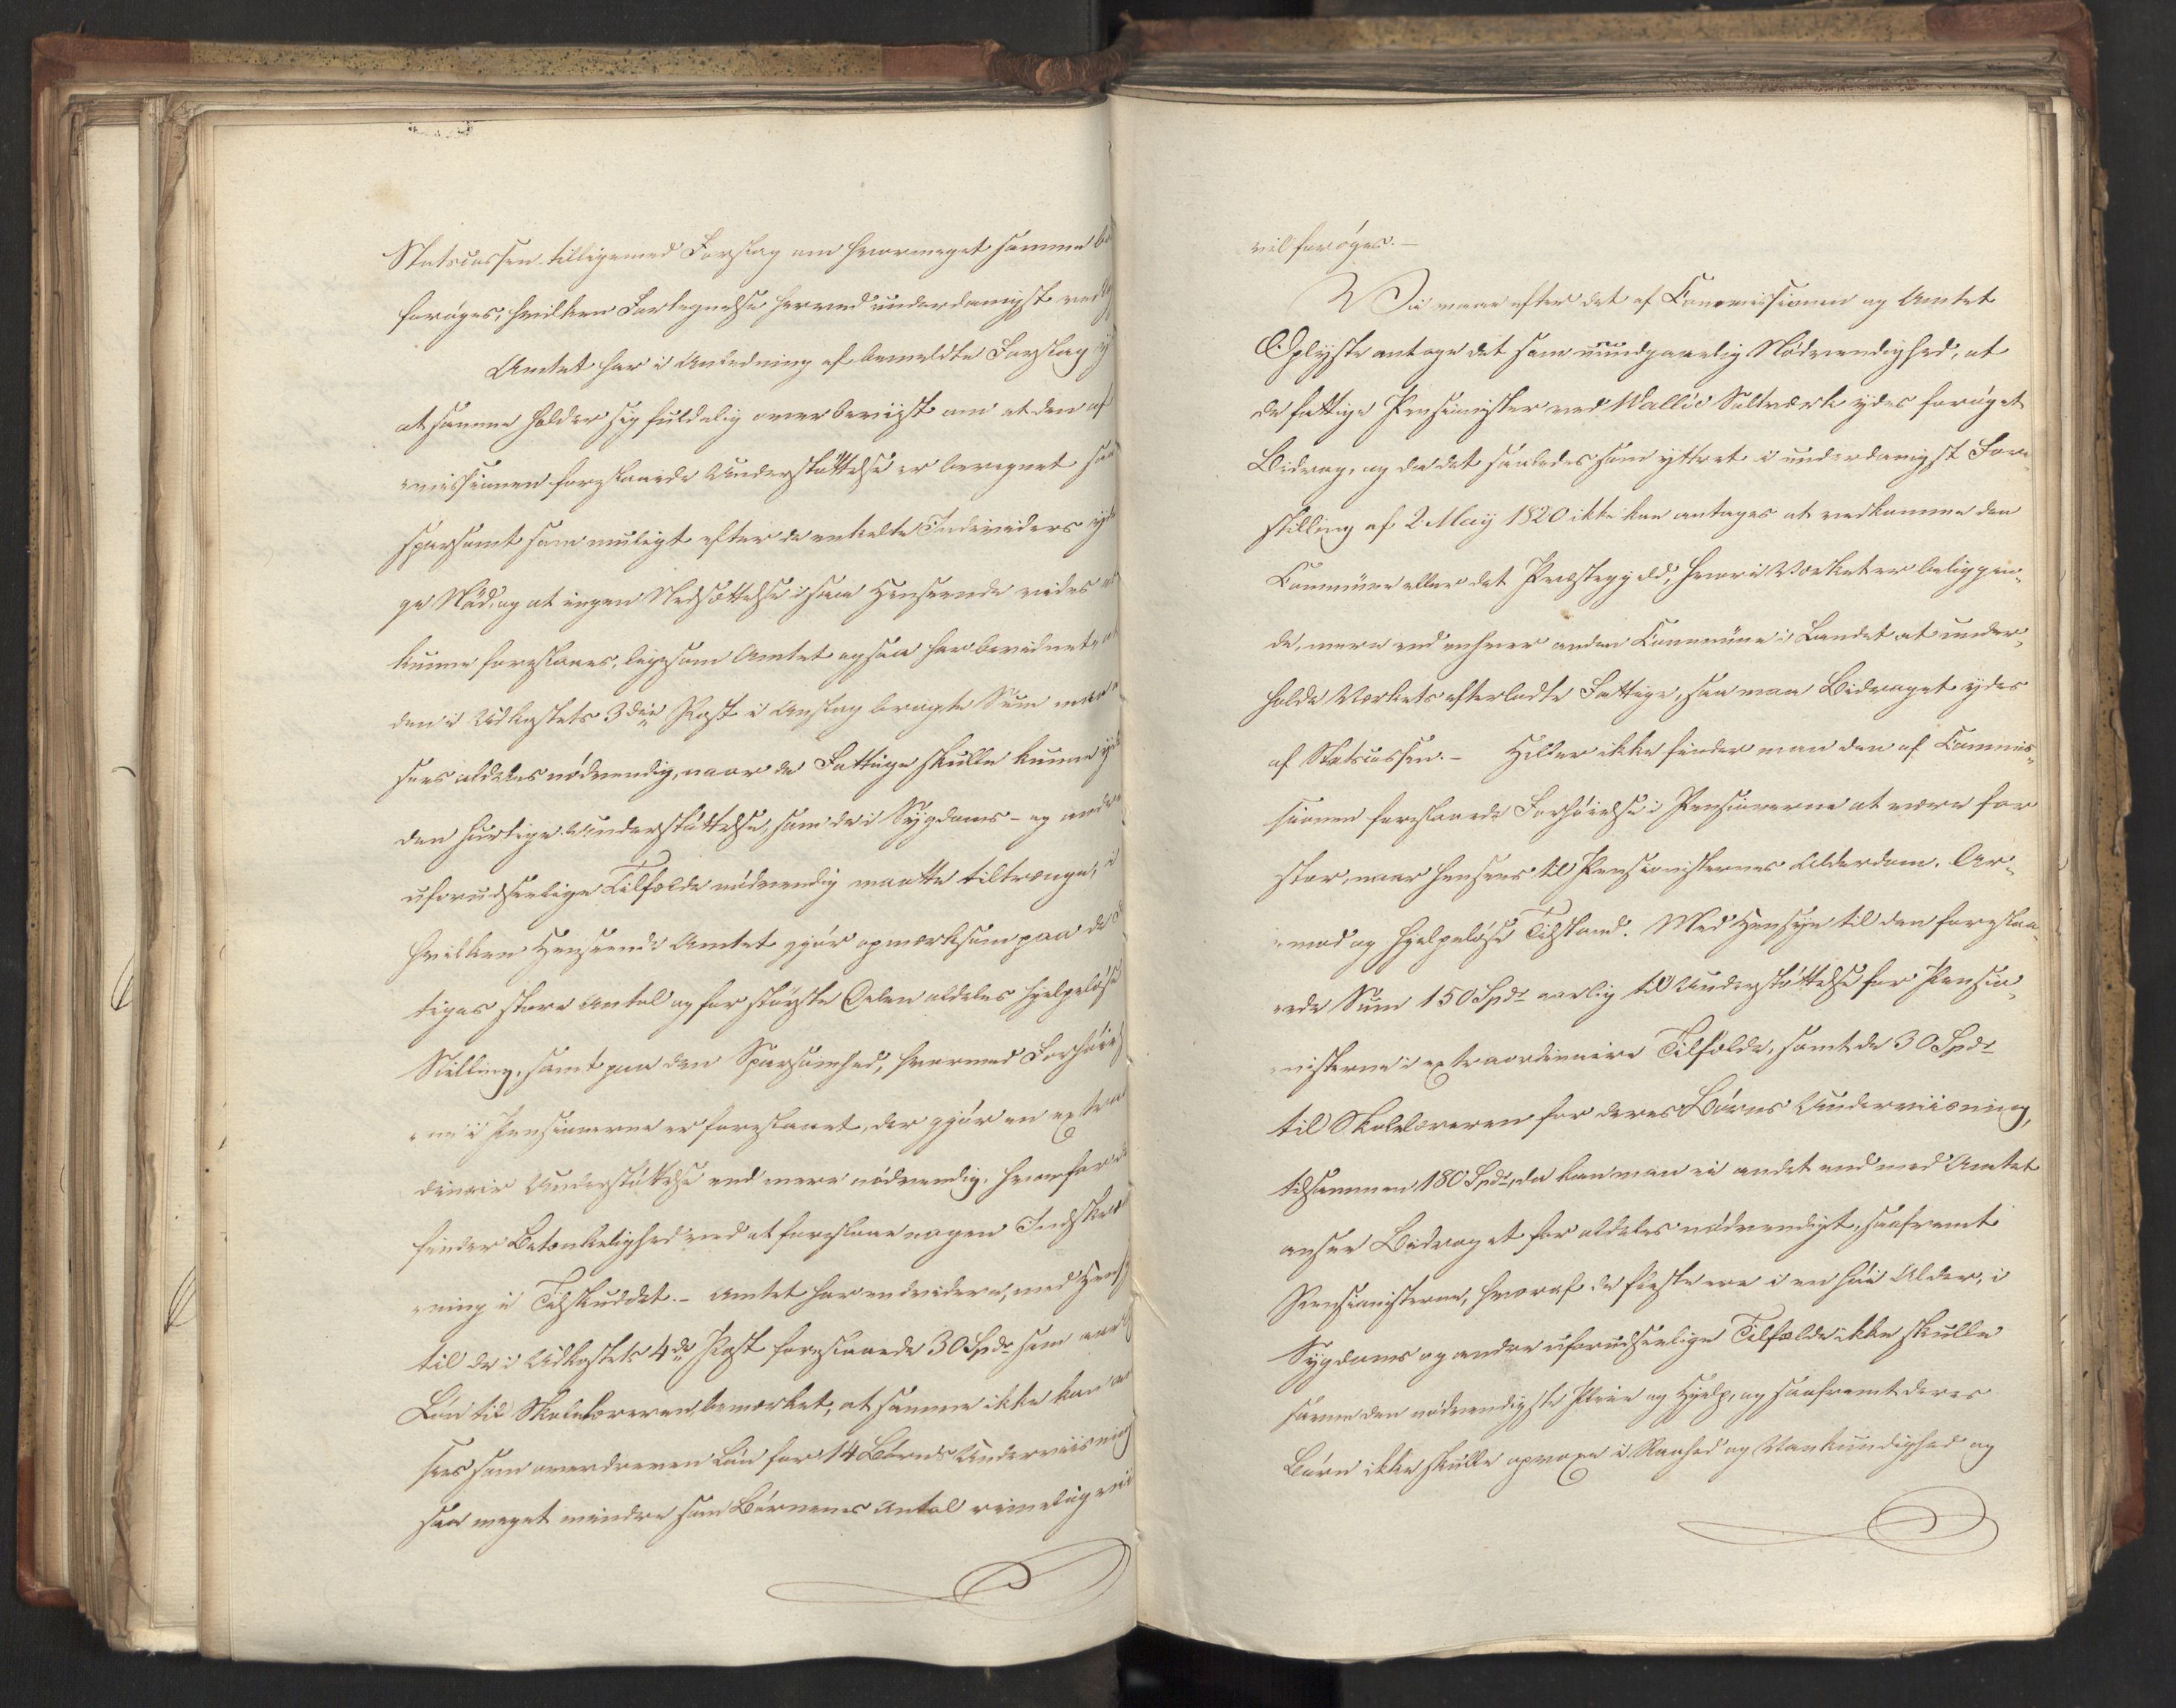 Statscassen tilligemed Forslag om hvormeget samme bø
forøges, hvilken Fortegnelse herved underdanigst vedlæg
Amtet har i Anledning af bemeldte Forslag y
at samme holder sig fuldelig overbeviist om at den af
missionen foreslaaede Understøttelse er beregnet saa
sparsomt som muligt efter de enkelte Individers
ge Nød, og at ingen Nedsættelse i saa Henseende vides at
kunne foreslaaes, ligesom Amtet ogsaa har bevidnet, at
den i Udkastets 3die Post i Anslag bragte Sum maa
sees aldeles nødvendig, naar de Fattige skulle kunne yd
den hurtige Understøttelse, som de i Sygdoms- og andre
uforudseelige Tilfælde nødvendig maatte tiltrænge, i
hvilken Henseende Amtet gjør opmærksom paa de
tiges store Antal og for største Delen aldeles hjelpeløse
Stilling, samt paa den Sparsomhed, hvormed Forhøiels
ne i Pensionerne er foreslaaet, der gjør en extra
dinair Understøttelse end mere nødvendig, hvorfor de
finder Betænkelighed ved at foreslaae nogen Indskræ
ning i Tilskuddet. - Amtet har endvidere, med Hensy
til de i Udkastets 4de Post foreslaaede 30 Spdr som aarl
Løn til Skolelæreren, bemærket, at samme ikke kan an
sees som overdreven Løn for 14 Børns Underviisning
saa meget mindre som Børnenes Antal rimeligviis
vil forøges. -
Vi maae efter det af Commissionen og Amtet
Oplyste antage det som uundgaaelig Nødvendighed, at
de fattige Pensionister ved Wallöe Saltværk ydes forøget
Bidrag, og da det saaledes som yttret i underdanigst Fore-
stilling af 2 May 1820 ikke kan antages at vedkomme den
Commune eller det Præstegjeld, hvori Værket er beliggen-
de, mere end enhver anden Commune i Landet at under-
holde Værkets efterladte Fattige, saa maa Bidraget ydes
af Statscassen. - Heller ikke finder man den af Commis-
sionen foreslaaede Forhøielse i Pensionerne at være for
stor, naar hensees til Pensionisternes Alderdom, Ar-
mod og hjelpeløse Tilstand. Med Hensyn til den foreslaa-
ede Sum 150 Spdr aarlig til Understøttelse for Pensio-
nisterne i extraordinaire Tilfælde, samt de 30 Spdr
til Skolelæreren for deres Børns Underviisning,
tilsammen 180 Spdr, da kan man ei andet end med Amtet
ansee Bidraget for aldeles nødvendigt, saafremt
Pensionisterne, hvoraf de fleste ere i en høi Alder, i
Sygdoms og andre uforudseelige Tilfælde ikke skulle
savne den nødvendigste Pleie og Hjelp, og saafremt deres
Børn ikke skulle opvoxe i Raahed og Vankundighed og